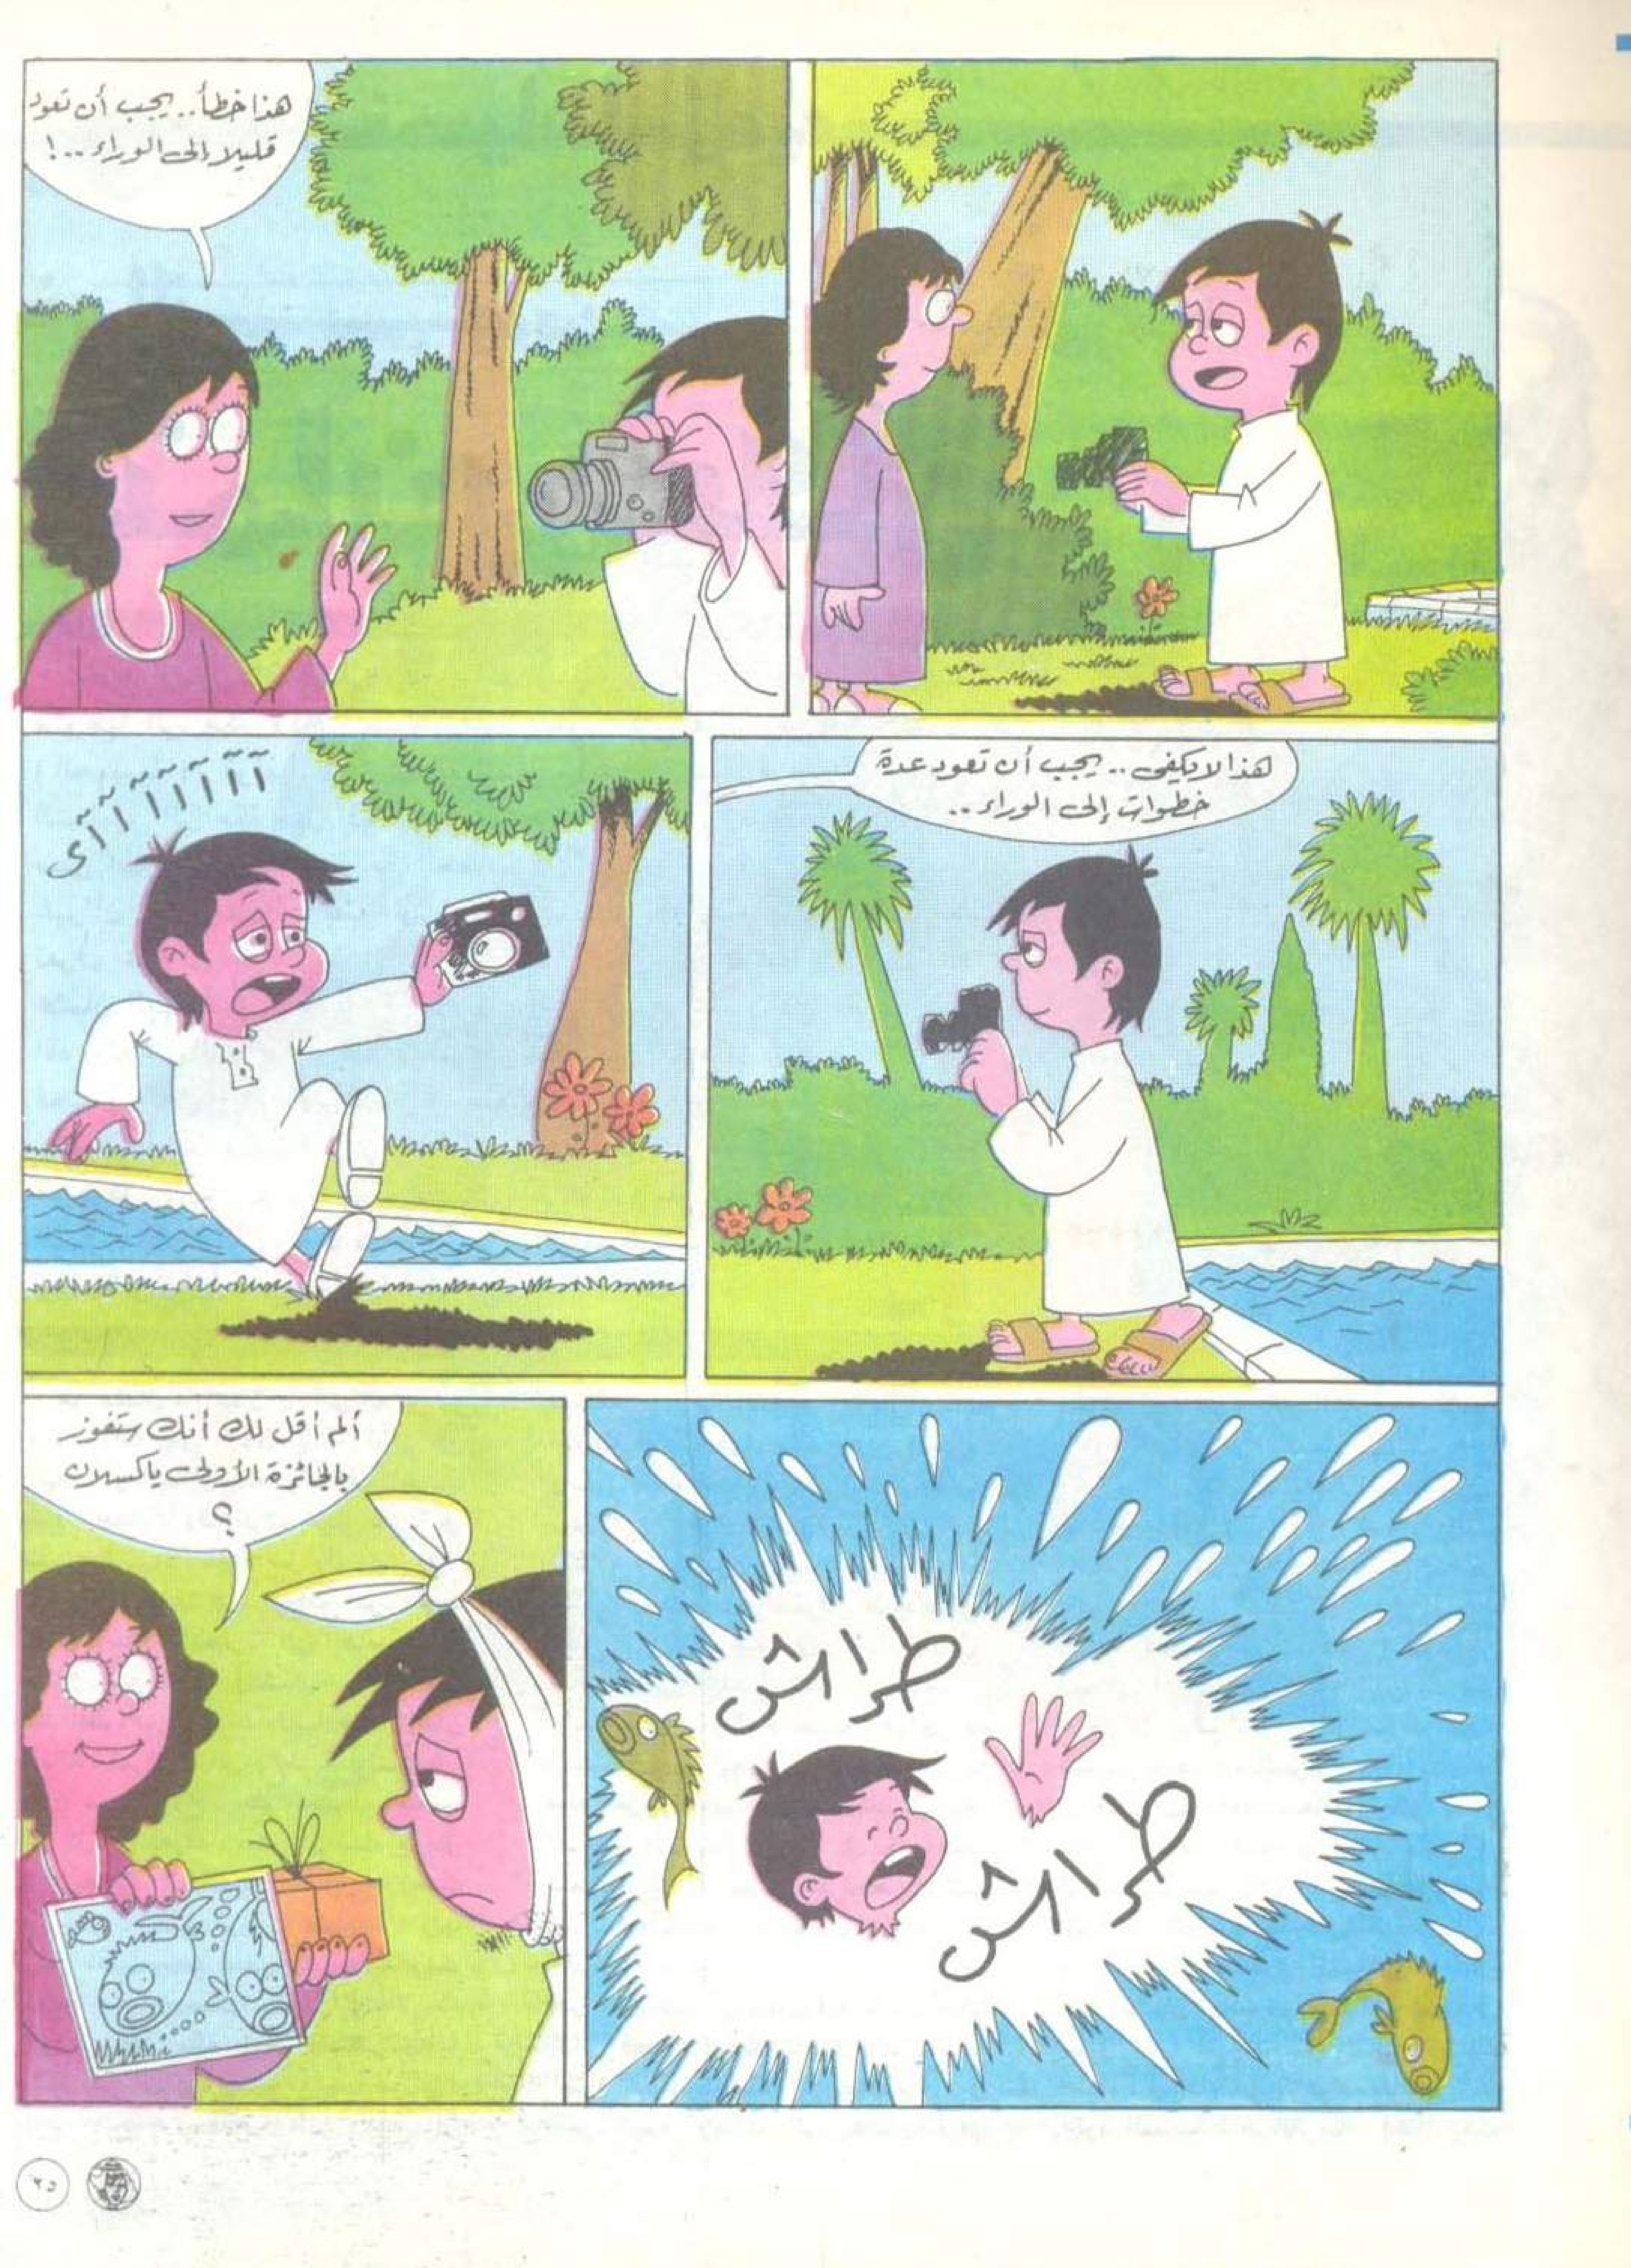 هذا خطأ.. يجب أن تعود
قليلا إلى الوراء..!
هذا لا يكفى.. يجب أن تعود عدة
خطوات إلى الوراء..
آآآآآآآآى
طراش
طراش
ألم أقل لك أنك ستفوز
بالجائزة الأولى ياكسلان
؟
٢٥